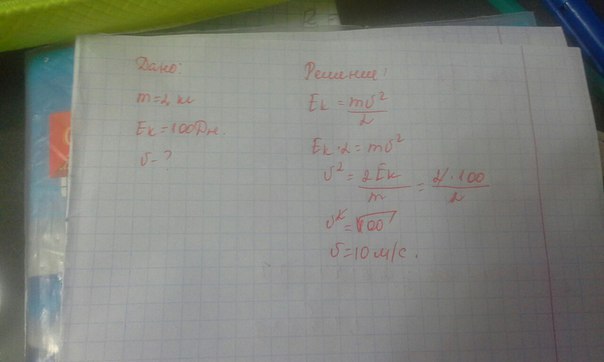 Дано:
m = 2 кг
Eк = 100 Дж.
υ - ?
Решение:
Eк = mυ²/2
Eк·2 = mυ²
υ² = 2Eк/m = 2·100/2
υ² = √100
υ = 10 м/с.